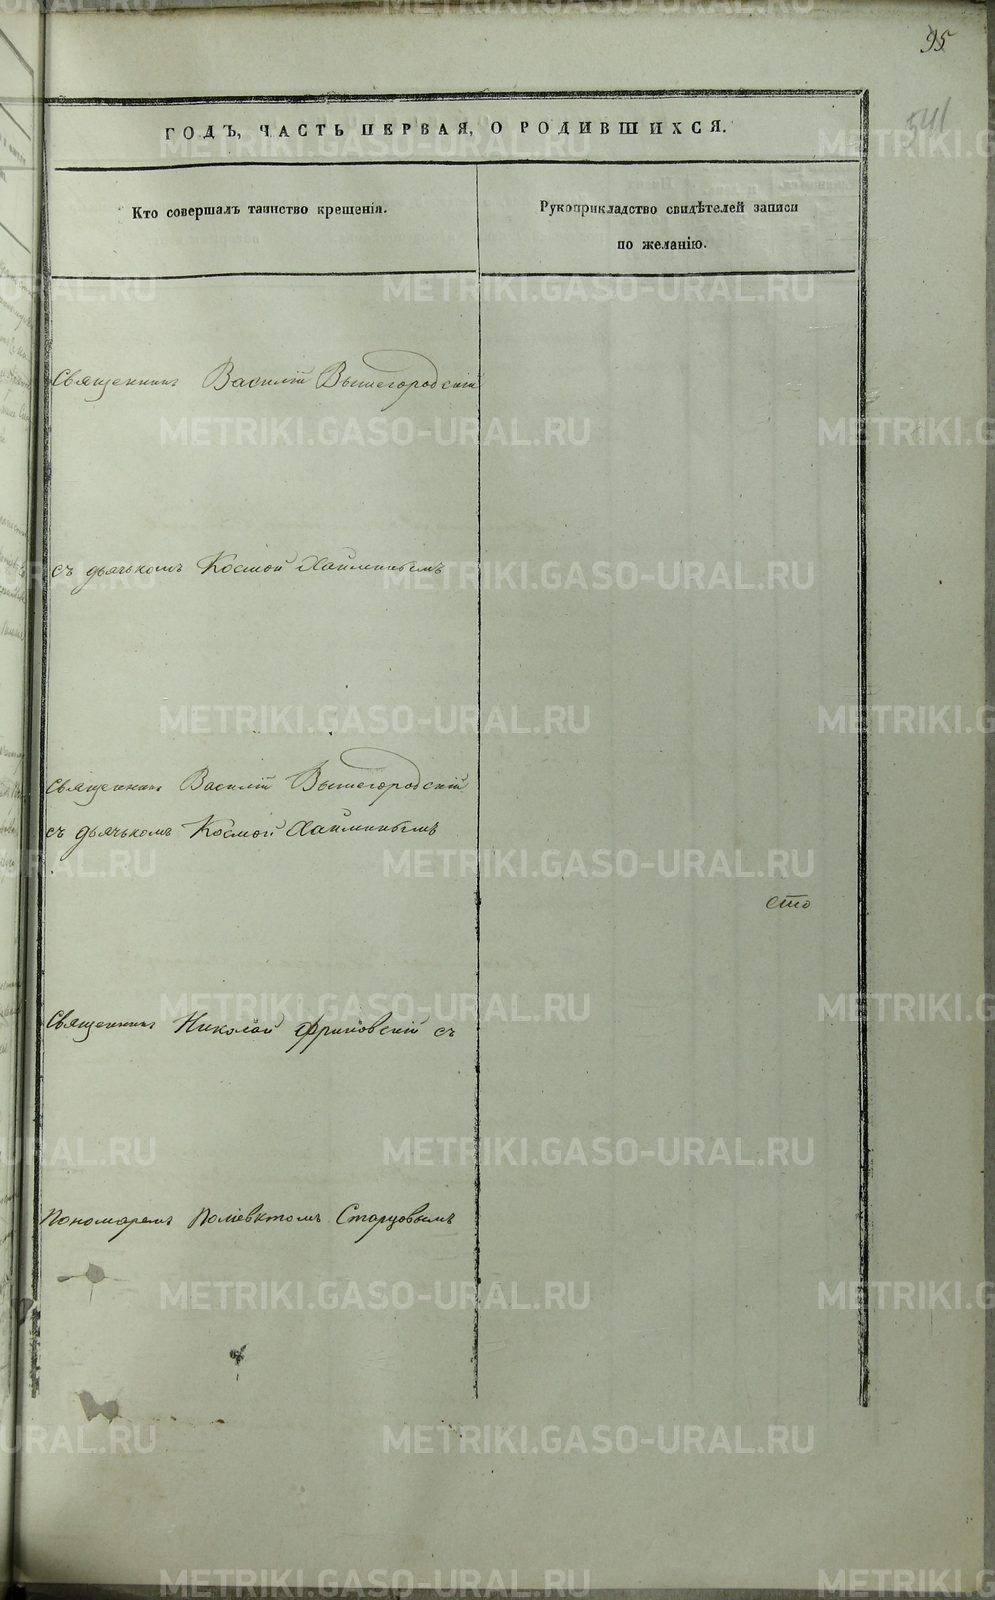 95
541
ГОДЪ, ЧАСТЬ ПЕРВАЯ, О РОДИВШИХСЯ.
Кто совершалъ таинство крещенія.
Рукоприкладство свидѣтелей записи
по желанію.
Священник Василій Вышегородскій
съ дьячькомъ Космой Хайминымъ
Священник Василій Вышегородскій
съ дьячькомъ Космой Хайминымъ
сто
Священник Николай Фриновскій съ
Пономаремъ Поліевктомъ Старцовымъ
METRIKI.GASO-URAL.RU